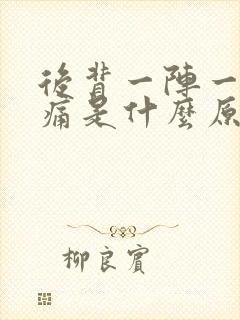 後背一陣一
痛是什麼原
柳良賓